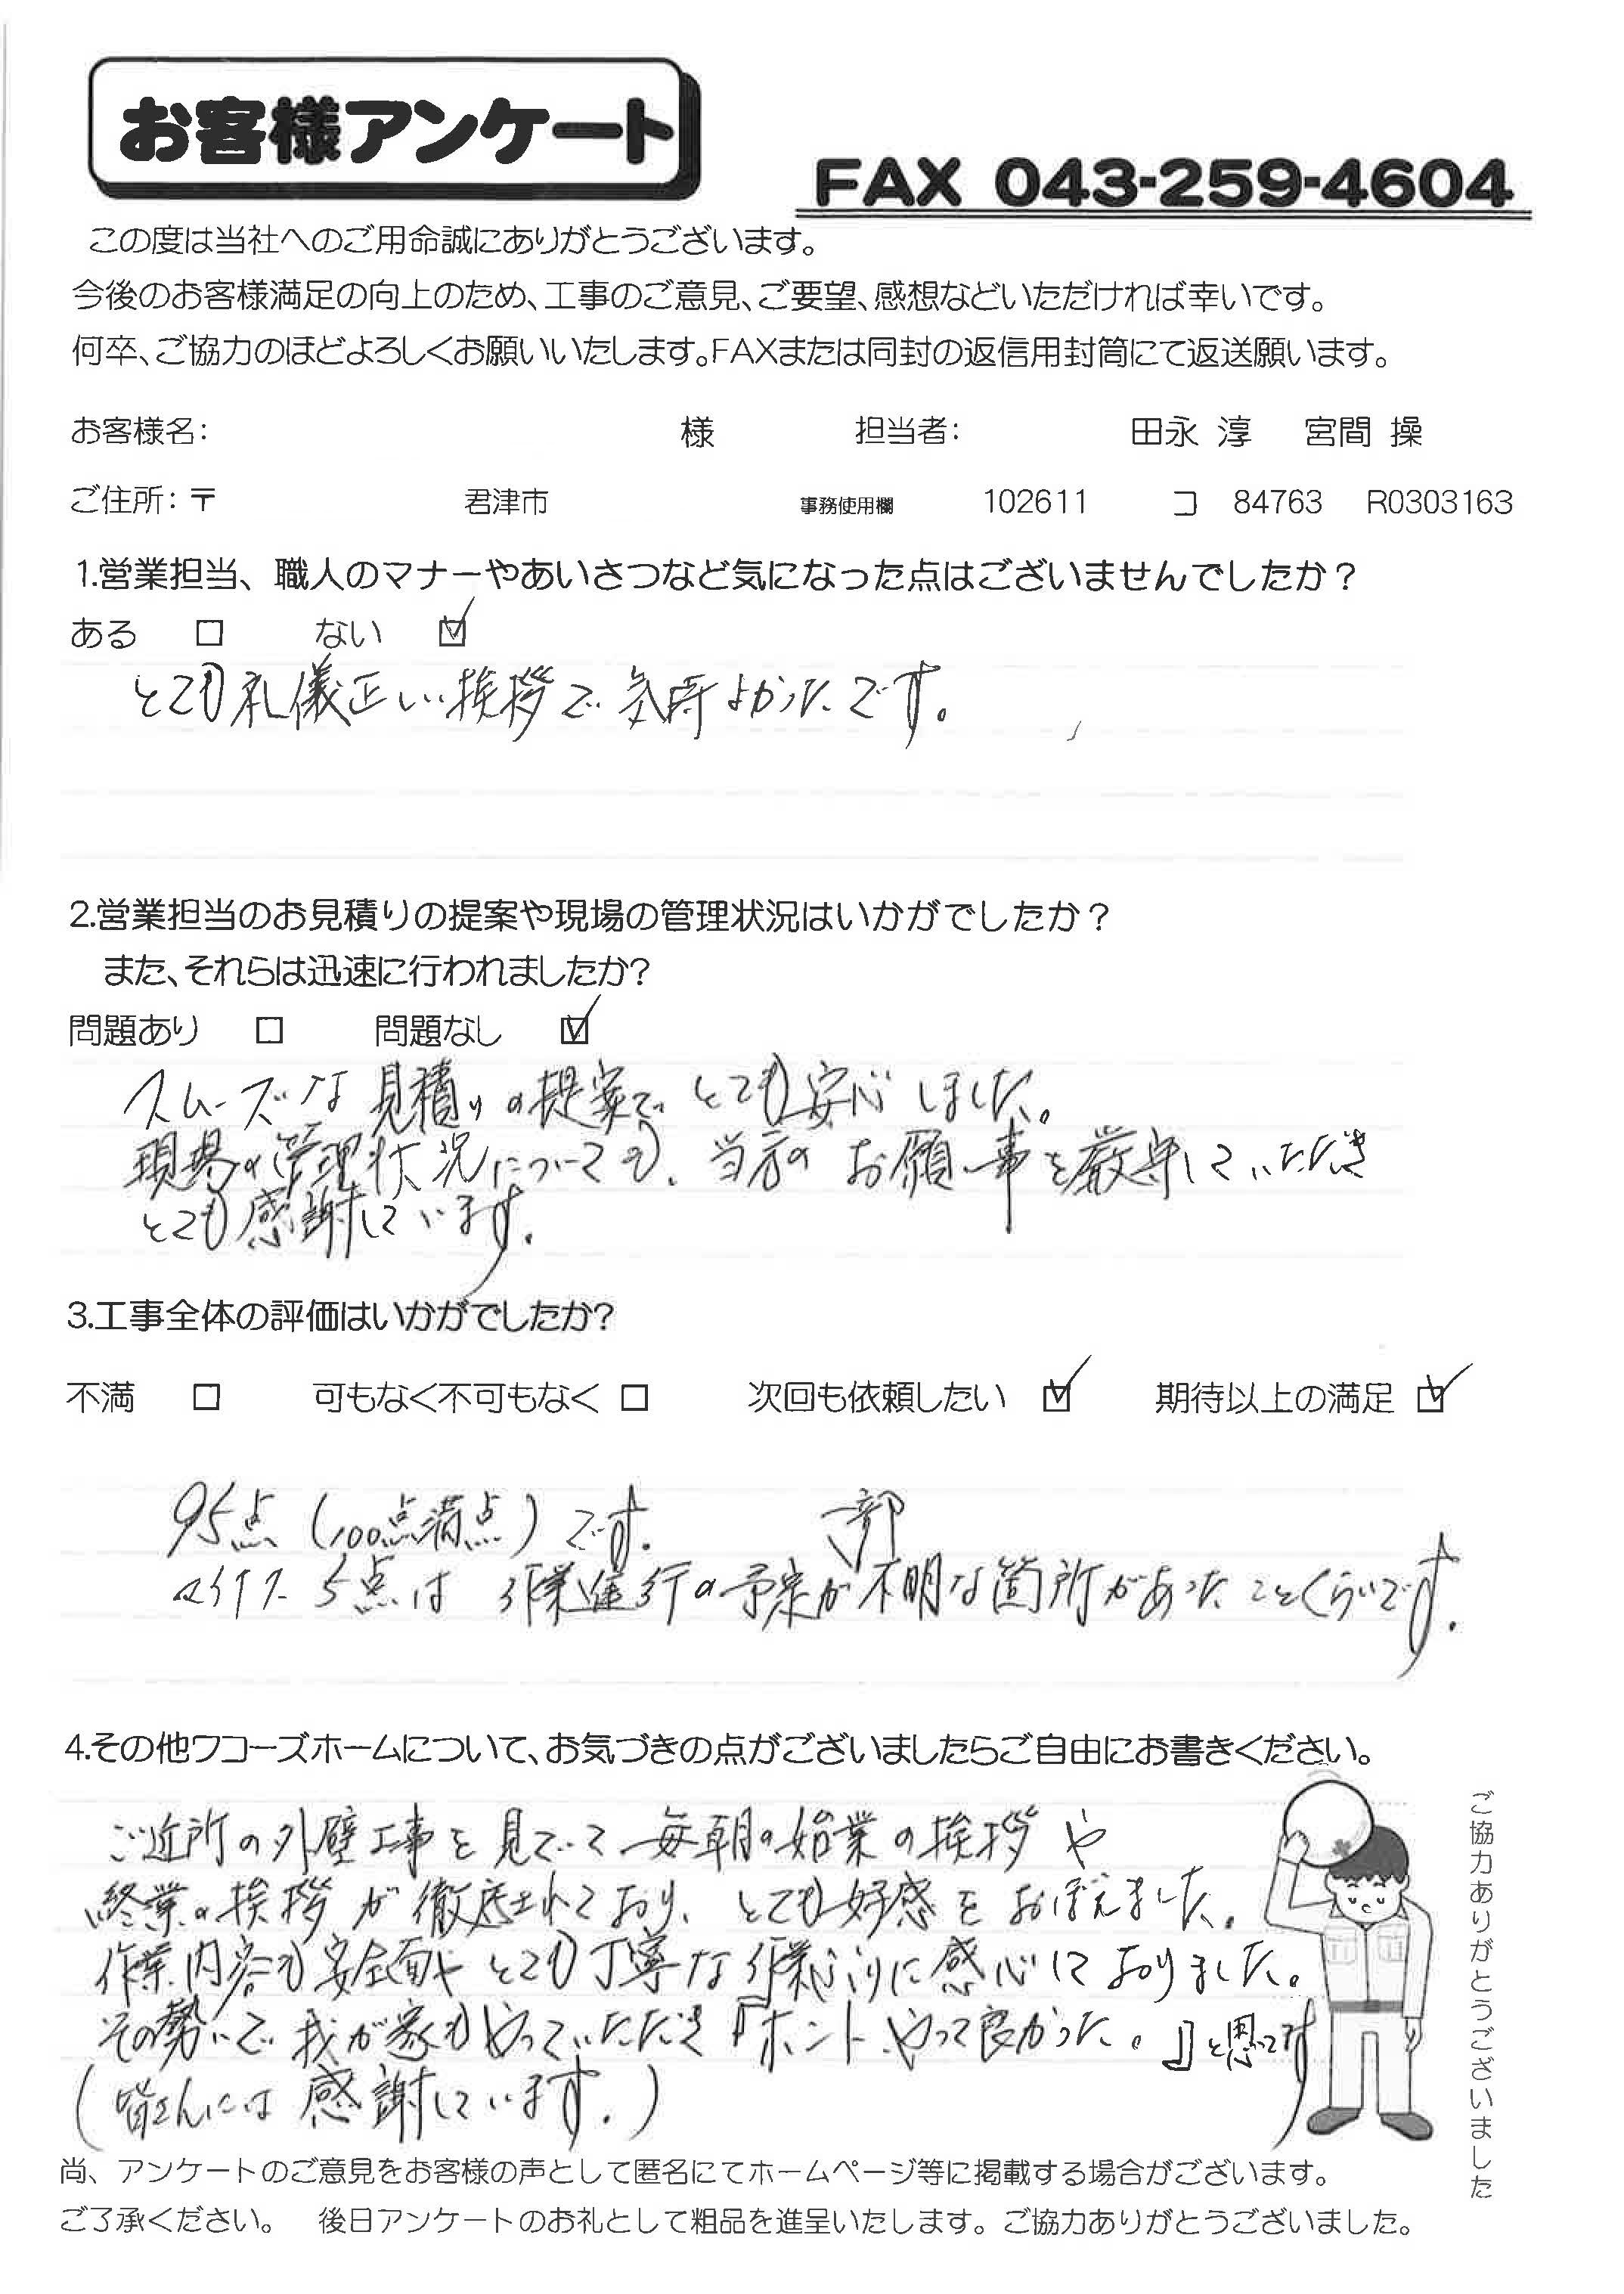 お客様アンケート
FAX 043-259-4604
この度は当社へのご用命誠にありがとうございます。
今後のお客様満足の向上のため、工事のご意見、ご要望、感想などいただければ幸いです。
何卒、ご協力のほどよろしくお願いいたします。FAXまたは同封の返信用封筒にて返送願います。
お客様名： 様 担当者： 田永 淳 宮間 操
ご住所：〒 君津市 事務使用欄 102611 コ 84763 R0303163
1.営業担当、職人のマナーやあいさつなど気になった点はございませんでしたか？
ある □ ない ☑
とても礼儀正しい挨拶で気持よかったです。
2.営業担当のお見積りの提案や現場の管理状況はいかがでしたか？
また、それらは迅速に行われましたか?
問題あり □ 問題なし ☑
スムーズな見積りの提案で、とても安心しました。
現場の管理状況についても、当方のお願い事を厳守していただき
とても感謝しています。
3.工事全体の評価はいかがでしたか?
不満 □ 可もなく不可もなく □ 次回も依頼したい ☑ 期待以上の満足 ☑
95点（100点満点）です。
マイナス5点は 作業進行の予定が一部不明な箇所があったことくらいです。
4.その他ワコーズホームについて、お気づきの点がございましたらご自由にお書きください。
ご近所の外壁工事を見ていて毎朝の始業の挨拶や
終業の挨拶が徹底されており、とても好感をおぼえました。
作業内容も安全面やとても丁寧な作業ぶりに感心しておりました。
その勢いで我が家もやっていただき『ホントやって良かった。』と思ってます
（皆さんには感謝しています。）
ご協力ありがとうございました
尚、アンケートのご意見をお客様の声として匿名にてホームページ等に掲載する場合がございます。
ご了承ください。 後日アンケートのお礼として粗品を進呈いたします。ご協力ありがとうございました。